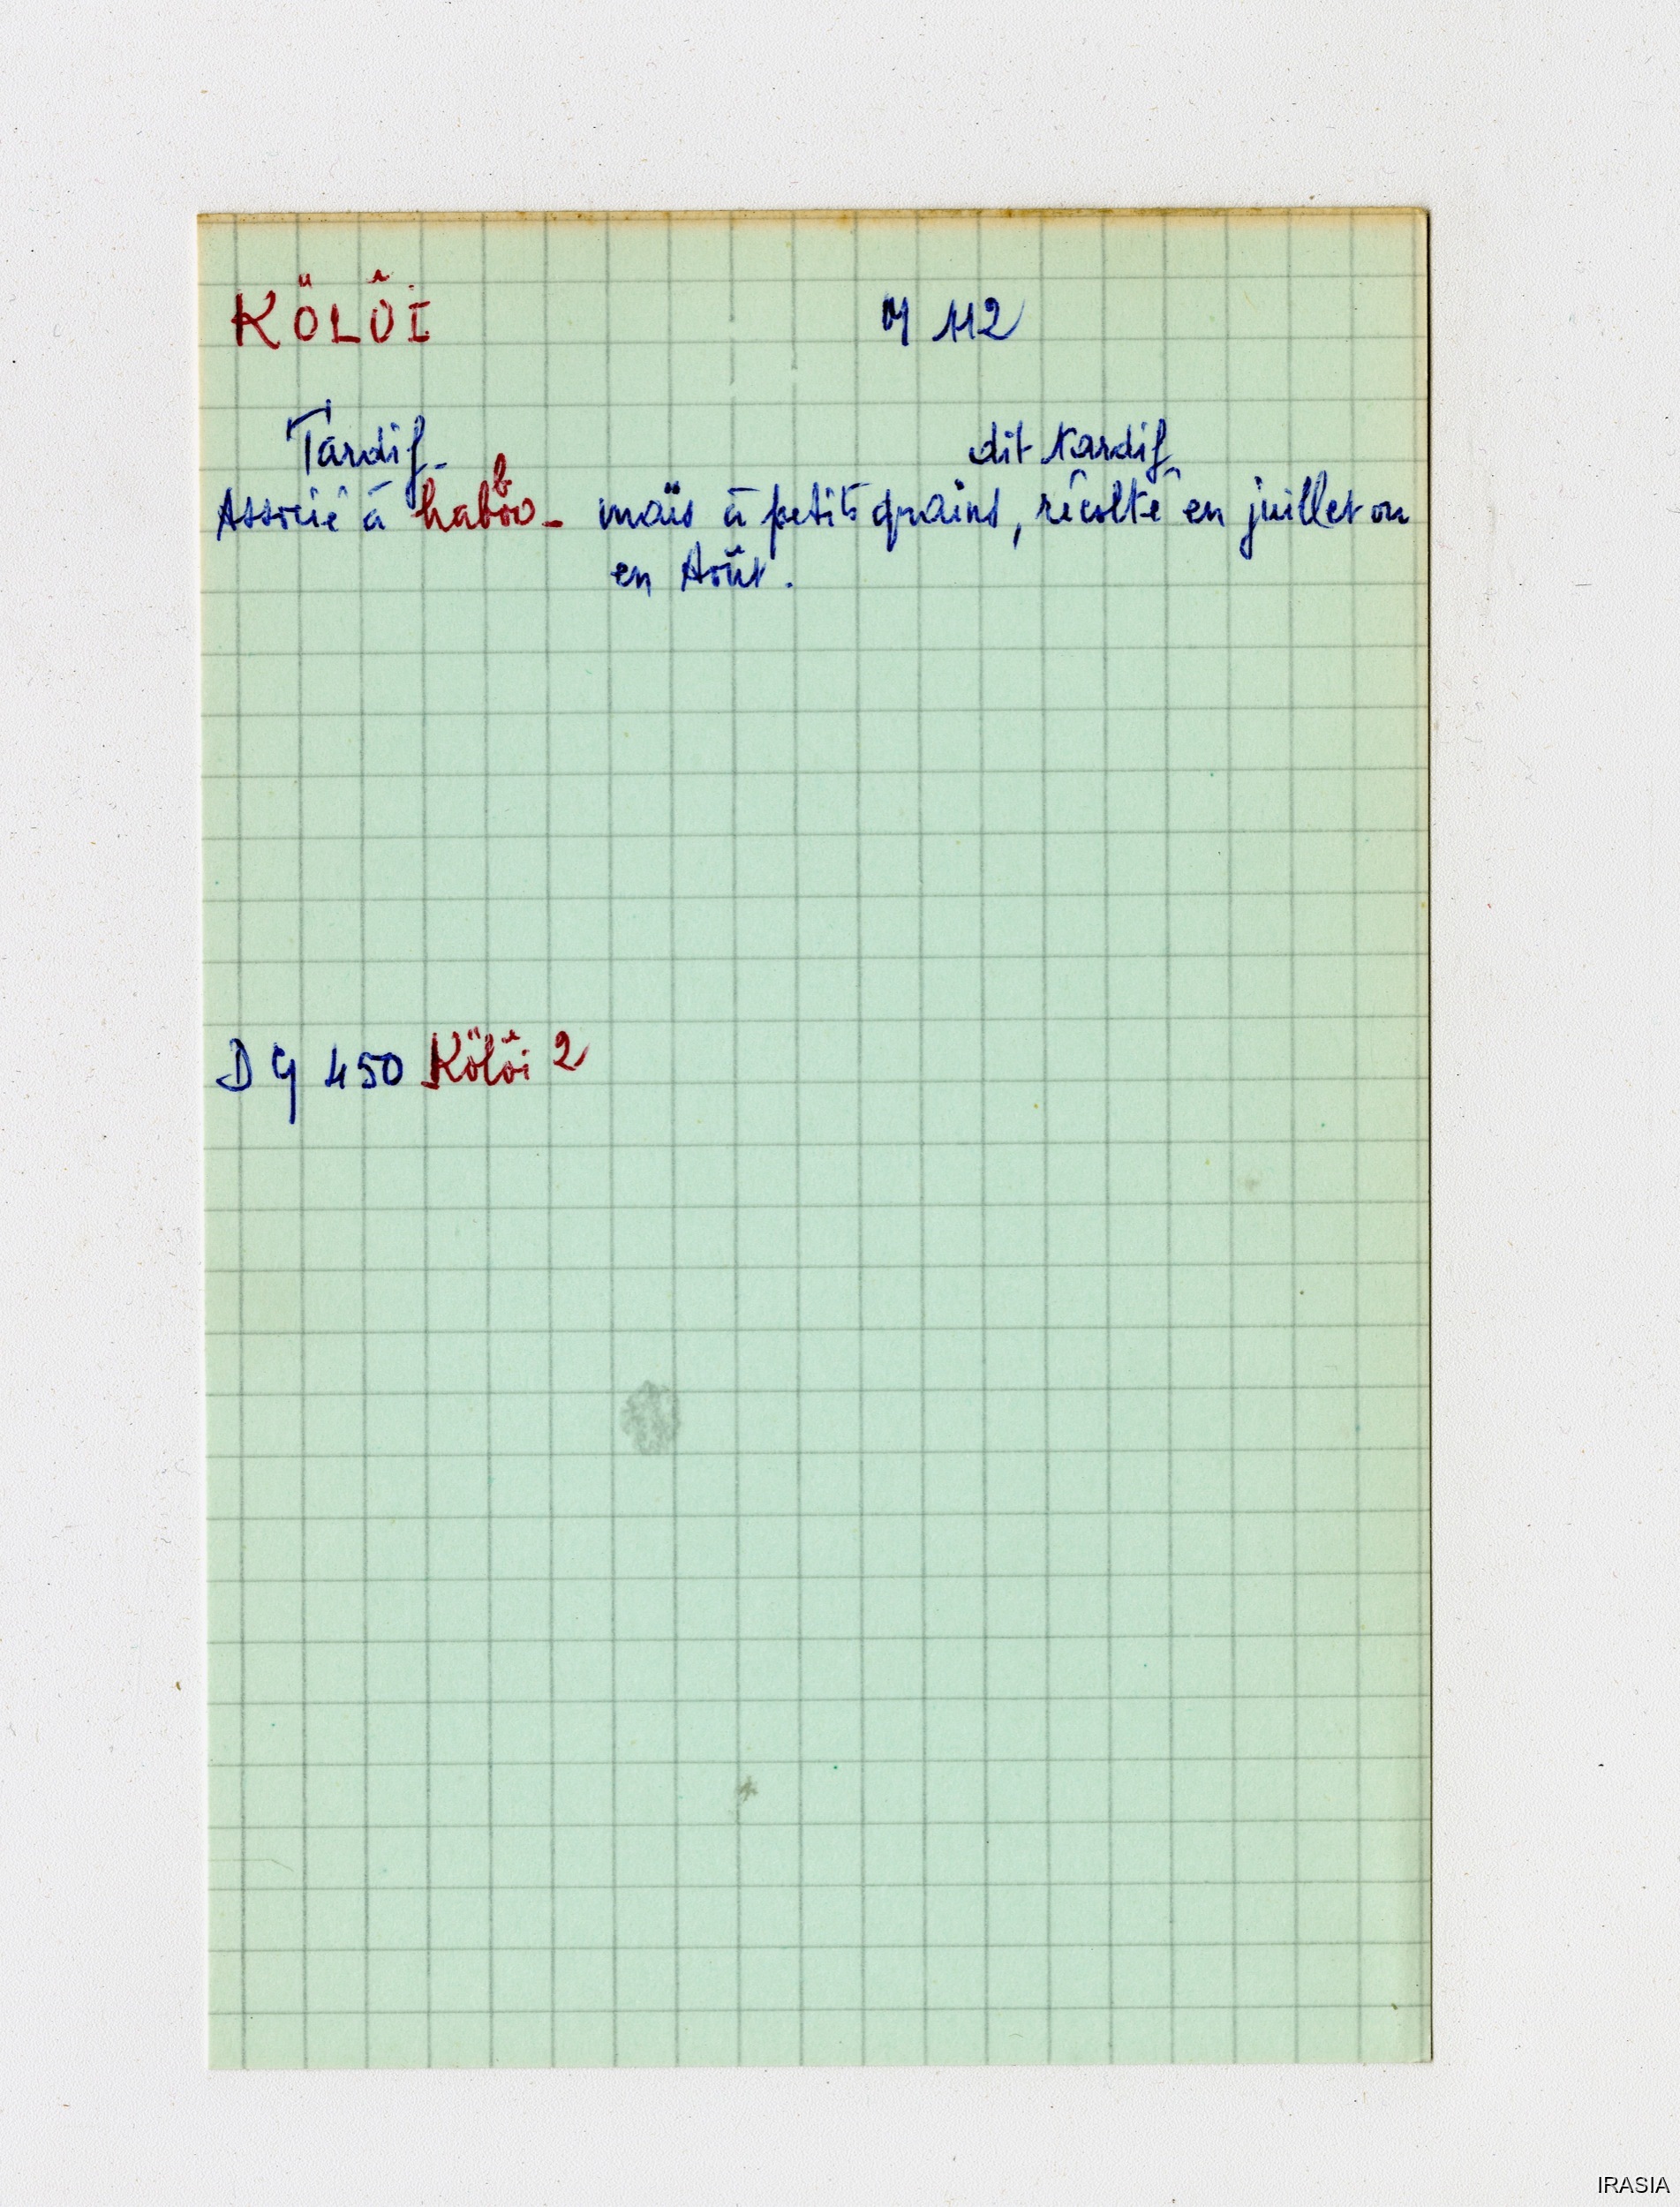 KÖLÔI M 112
Tardif - dit tardif
Associé à habbo - maïs à petits grains, récolté en juillet ou
en Août.
DG 450 Kölôi 2
IRASIA